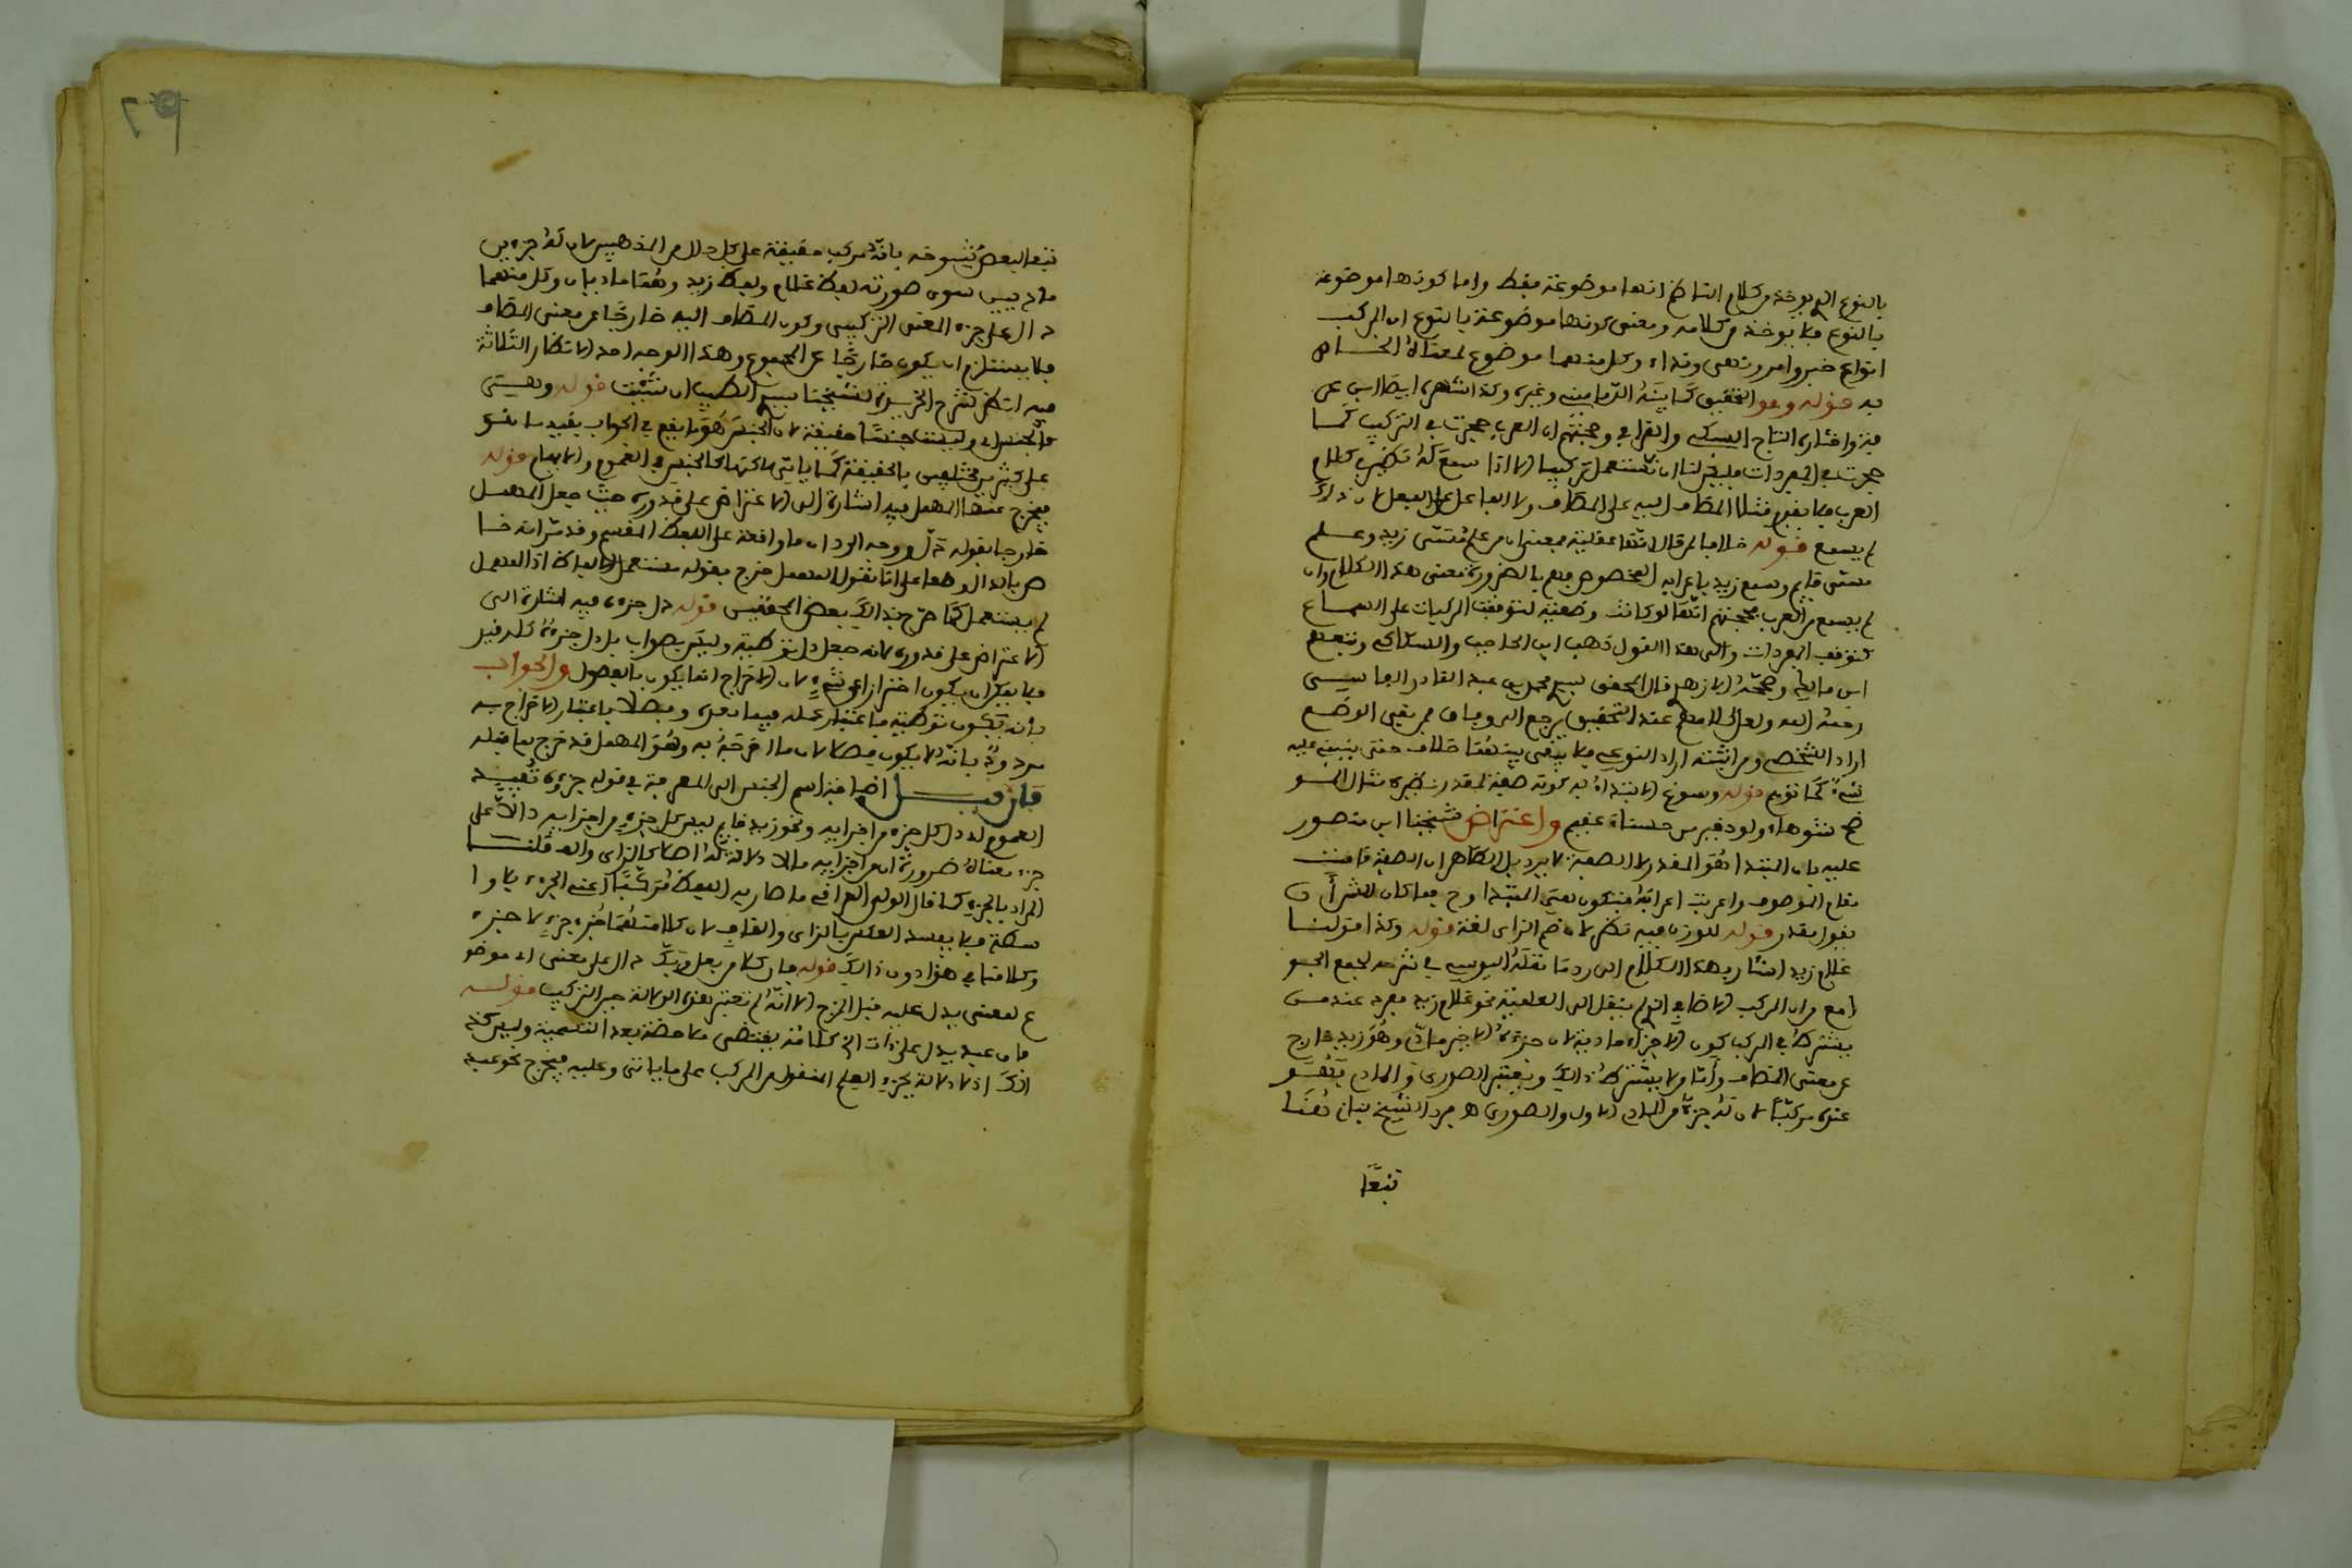 بالنوع الم يوخذ من كلام الناظم انها موضوعة فقط واما كونها موضوعة
بالنوع فلا يوخذ من كلامه ومعنى كونها موضوعة بالنوع ان المركب
انواع خبر وامر ونهى ونداء وكل منهما موضوع لمعناه الخاص
به قوله وهو التحقيق كما بينه الدمامينى وغيره وكذا
واختاره التاج السبكى والقرافى وحجتهم ان العرب حجرت فى التركيب كما
حجرت فى المفردات فليس لنا ان نستعمل تركيبا الا اذا سمع له نظير فى كلام
العرب فلا يقدم مثلا المضاف اليه على المضاف ولا الفاعل على الفعل لان ذالك
لم يسمع قوله خلافا لمن قال انها عقلية بمعنى ان من علم مسمى زيد وعلم
مسمى قايم وسمع زيد باعرابه المخصوص فهم بالضرورة معنى هذا الكلام وان
لم يسمع من العرب حجتهم انها لو كانت وضعية لتوقفت المركبات على السماع
كتوقف المفردات والى هذا القول ذهب ابن الحاجب والسكاكى وتبعهم
ابن مالك وصححه الازهرى قال المحقق سيدى محمد بن عبد القادر الفاسى
رحمه الله ولعل الخلاف عند التحقيق يرجع الى وفاق فمن نفى الوضع
اراد الشخصى ومن اثبته اراد النوعى فلا يبقى بينهما خلاف حتى ينبنى عليه
شىء كما توهم قوله وسوغ الابتداء به كونه صفة لمقدر نظيره مثال المو
ضح شوهاء ولود خير من حسناء عقيم واعترض شيخنا ابن منصور
عليه بان المبتدا هو المقدر لا الصفة لا يرد بل الظاهر ان الصفة قامت
مقام الموصوف واعربت اعرابه فتكون هى المبتدا
يقول مقدر قوله للوزن فيه نظر لان ضم الزاى لغة قوله وكذا قولنا
غلام زيد اشار بهذا الكلام الى رد ما نقله اليوسى فى شرحه لجمع الجو
امع من ان المركب الاضافى الم ينقل الى العلمية نحو غلام زيد مفرد عند من
يشترط فى المركب كون الاجزاء مادية لان جزءه الاخير مادى وهو زيد خارج
عن معنى المضاف وأما من لا يشترط ذالك ويعتبر الصورى والمادى فهو
عنده مركب لان له جزءا من المادى الاول والصورى فرد الشيخ بنان هنا
تبعا
تبعا لبعض شيوخه بانه مركب حقيقة على كل من المذهبين لان له جزءين
ماديين سوى صورته لفظ غلام ولفظ زيد وهما ماديان وكل منهما
دال على جزء المعنى التركيبى وكون المضاف اليه خارجا عن معنى المضاف
فلا يستلزم ان يكون خارجا عن المجموع وهذا الوجه احد الانظار الثلاثة
فيه انظر شرح الخريدة لشيخنا سيدى الطيب ان شئت قوله ويسمى
والجنس وليست جنسا حقيقة لان الجنس هو ما يقع فى الجواب بقيد
على كثيرين مختلفين بالحقيقة كما ياتى لاكنها كالجنس فى العموم والابهام قوله
فيخرج عنها المهمل فيه اشارة الى الاعتراض على قدوره حيث جعل المهمل
خارجا بقوله دل ووجه الرد ان ما واقعة على اللفظ المقسم وقد مر انه خا
ص بالدال وضعا على انا نقول المهمل خرج بقوله مستعمل الالفاظ اذ المهمل
لم يستعمل كما صرح بذالك بعض المحققين قوله دل جزءه فيه اشارة الى
الاعتراض على قدوره لانه جعل دل توطية وليس بصواب بل دل جزءه كله قيد
فلا يمكن ان يكون احترازا عن شىء لان الاخراج انما يكون بالفصول والجواب
بانه يكون توطية باعتبار عمله فيما بعده وفصلا باعتبار الاخراج به
مردود بانه لا يكون فصلا لان ما اخرجه به وهو المهمل قد خرج بما قبله
فان قيل اضافة اسم الجنس الى المعرفة فى قوله جزءه تفيد
العموم له دل كل جزء من اجزايه ونحو زيد قايم ليس كل جزء من اجزايه دالا على
جزء معناه ضرورة ان من اجزايه مالا دلالة له اصلا كالزاى والقاف قلنا
المراد بالجزء كما قال الولى العراقى ما صار به اللفظ مركبا اعنى الجزء بلا وا
سطة فلا يفسد العكس بالزاى والقاف لان كلا منهما جزء جزء لا جزء
وكلامنا فى هذا دون ذالك قوله فان كلا من بعل وبك دال على معنى اى موضو
ع لمعنى يدل عليه قبل المزج الا انه لم تعتبر هذه الدلالة حين التركيب قوله
فان عبد يدل على ذات الخ كلامه يقتضى ملاحظة بعد التسمية وليس كذ
الك اذ لا دلالة لجزء العلم المنقول من المركب على ما ياتى وعليه فيخرج نحو عبد